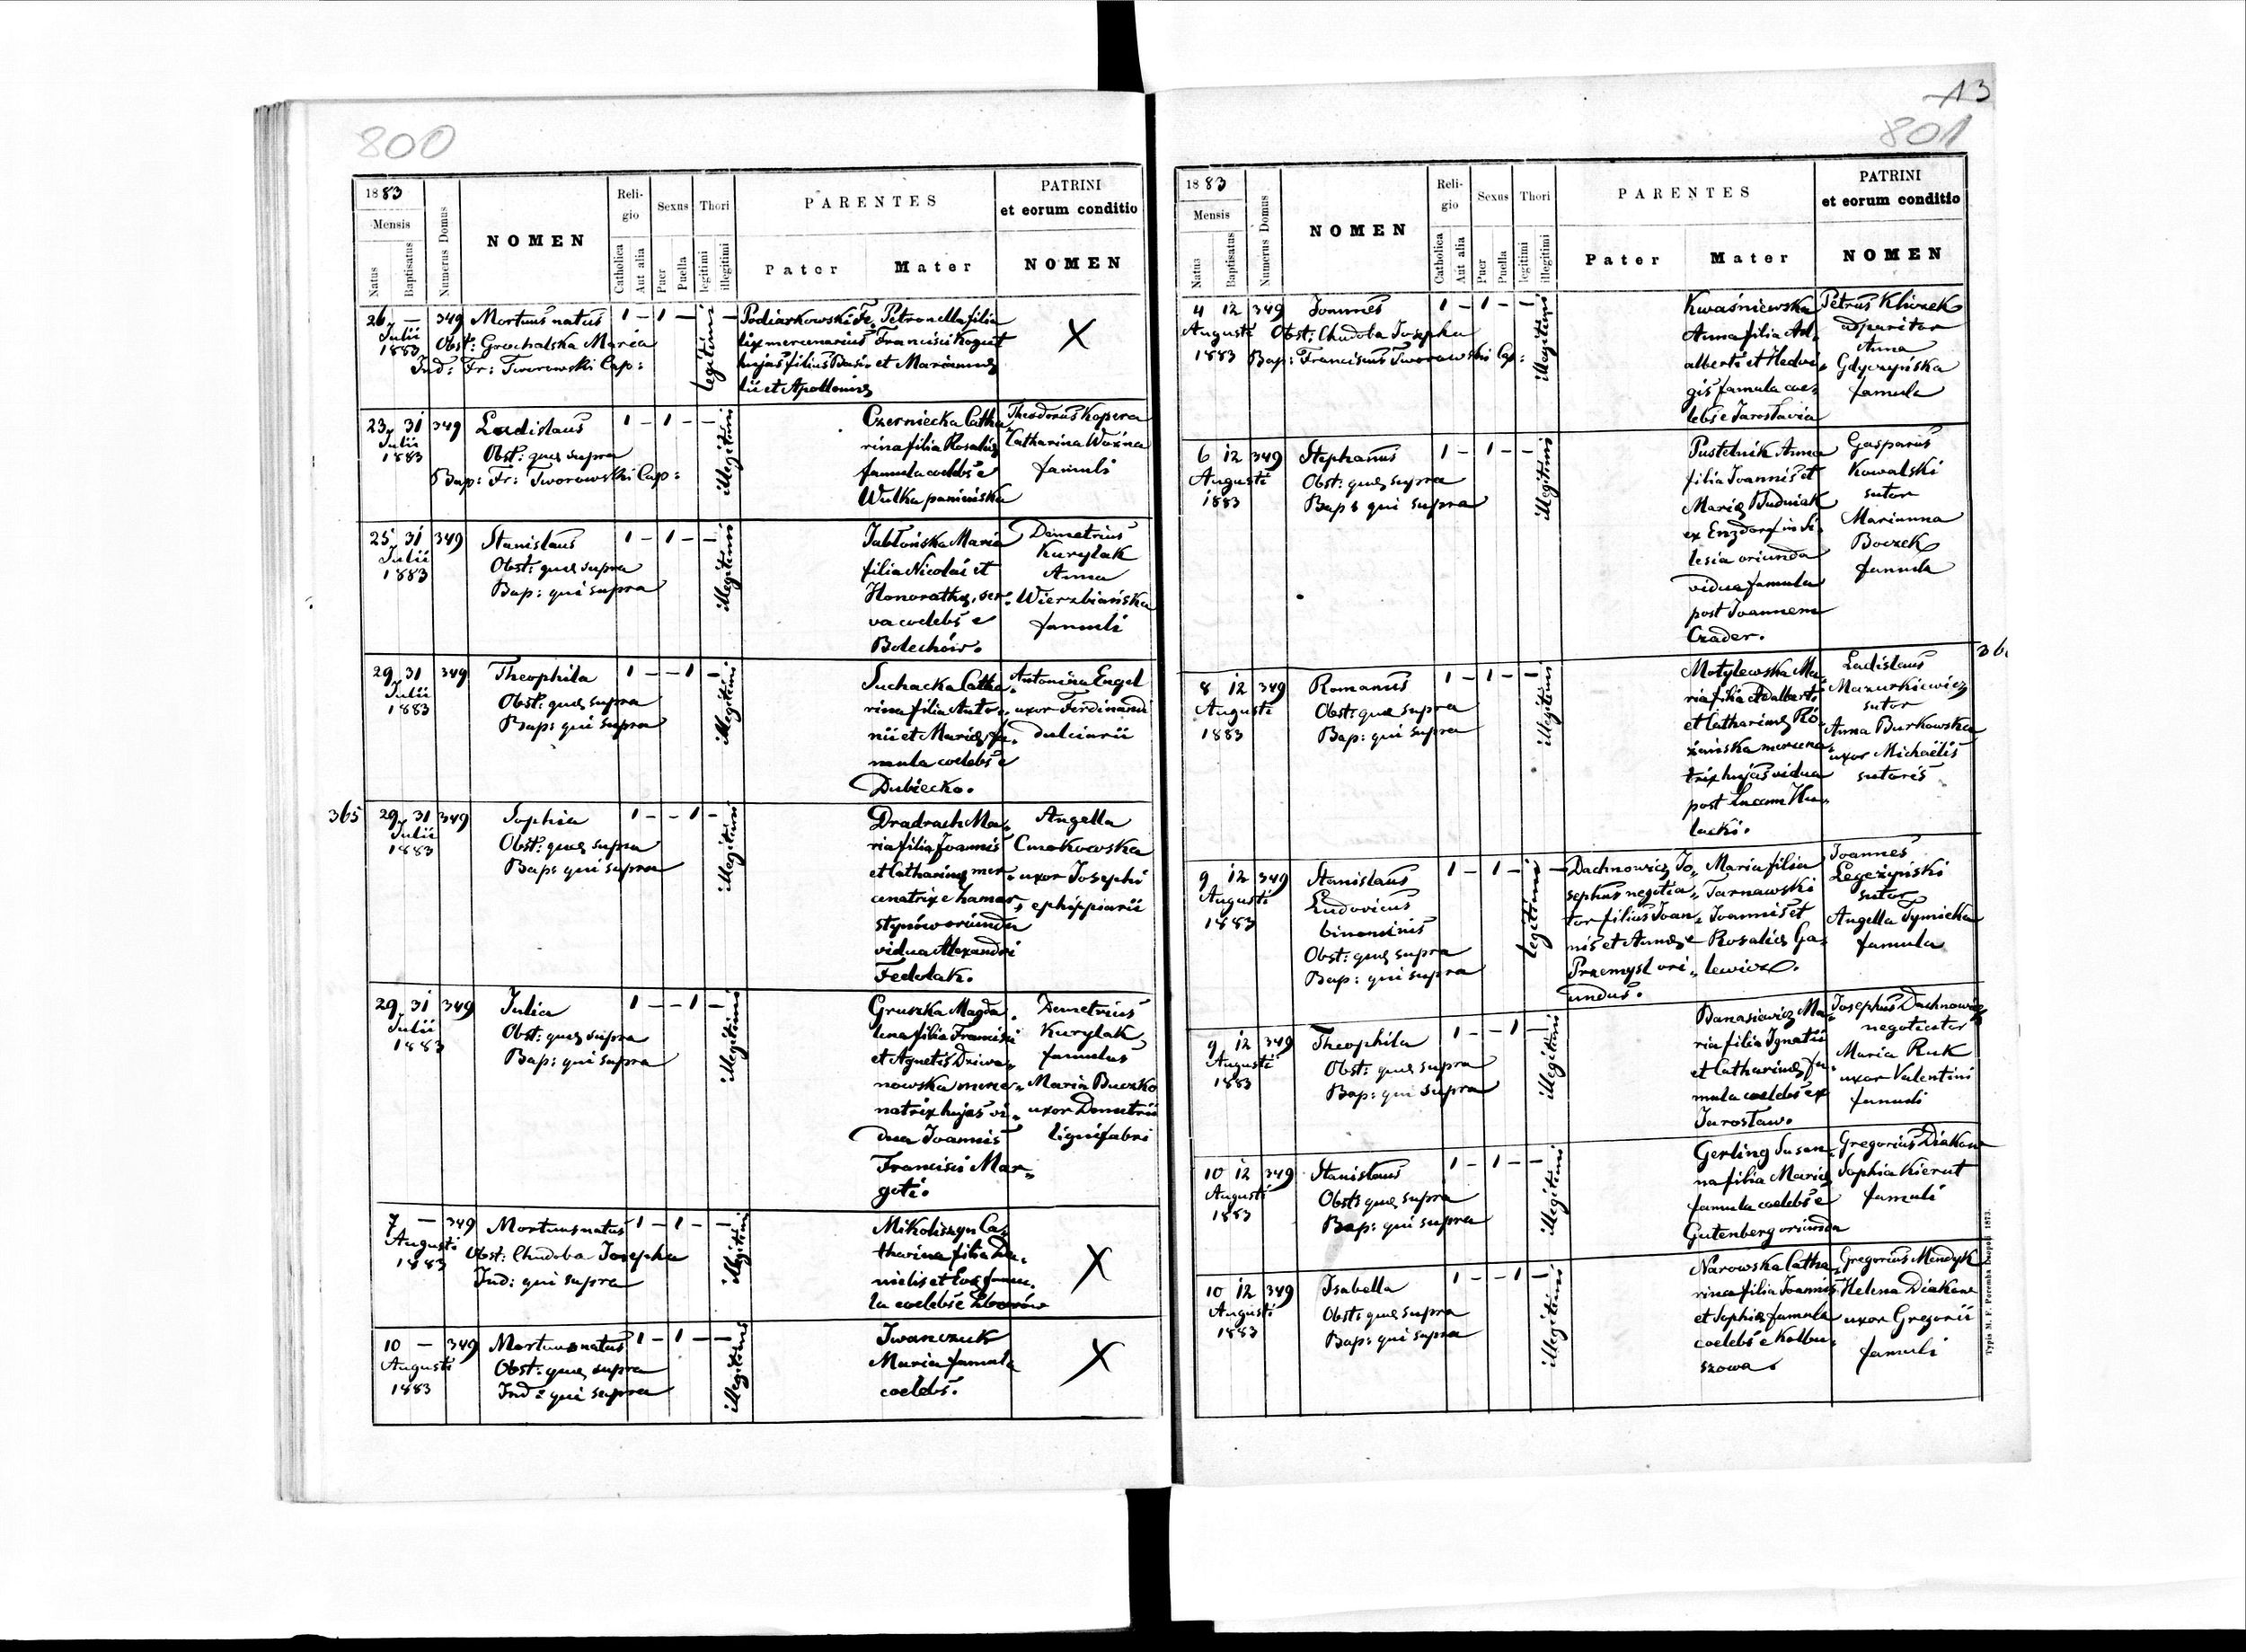 800
1883
Mensis
Natus
Baptisatus
Numerus Domus
NOMEN
Religio
Catholica
Aut alia
Sexus
Puer
Puella
Thori
legitimi
illegitimi
PARENTES
Pater
Mater
PATRINI
et eorum conditio
NOMEN
26 — 349 Mortuus natus 1 – 1 – –
Julii
1883
Obst: Grochalska Maria
Ind: Fr: Tworowski Cap:
legitimi
Podiarkowski Fe-
lix mercenarius
hujas filius Basi-
lii et Apolloniæ
Petronella filia
Francisci Kogut
et Mariannæ
X
23 31 349 Ladislaus 1 – 1 – –
Julii
1883
Obst: quæ supra
Bap: Fr: Tworowski Cap:
illegitimi
Czerniecka Catha
rina filia Rosaliæ
famula coelebs e
Wulka panińska
Theodorus Kopera
Catharina Woźna
famuli
25 31 349 Stanislaus 1 – 1 – –
Julii
1883
Obst: quæ supra
Bap: qui supra
illegitimi
Jabłońska Maria
filia Nicolai et
Honorathæ, ser-
va coelebs e
Bolechów.
Demetrius
Kurylak
Anna
Wierzbiańska
famuli
29 31 349 Theophila 1 – – 1 –
Julii
1883
Obst: quæ supra
Bap: qui supra
illegitimi
Suchacka Catha-
rina filia Anto-
nii et Mariæ, fa-
mula coelebs e
Dubiecko.
Antonina Engel
uxor Ferdinandi
dulciarii
365
29 31 349 Sophia 1 – – 1 –
Julii
1883
Obst: quæ supra
Bap: qui supra
illegitimi
Dradrach Ma-
ria filia Joannis
et Catharinæ mer-
cenatrix e
oriunda
vidua Alexandri
Fedolak.
Angella
Cmokowska
uxor Josephi
ephippiarii
29 31 349 Julia 1 – – 1 –
Julii
1883
Obst: quæ supra
Bap: qui supra
illegitimi
Gruszka Magda-
lena filia Francisci
et Agnetis Dziwa-
nowska merce-
natrix hujas vi-
dua Joannis
Francisci Mar-
goti.
Demetrius
Kurylak
famulus
Maria Buczko
uxor Demetrii
lignifabri
7 — 349 Mortuus natus 1 – 1 – –
Augusti
1883
Obst: Chudoba Josepha
Ind: qui supra
illegitimi
Mikoliszyn Ca-
tharina filia Da-
nielis et Evæ famu-
la coelebs e
X
10 — 349 Mortuus natus 1 – 1 – –
Augusti
1883
Obst: quæ supra
Ind: qui supra
illegitimus
Iwanczuk
Maria famula
coelebs.
X
13
801
1883
Mensis
Natus
Baptisatus
Numerus Domus
NOMEN
Religio
Catholica
Aut alia
Sexus
Puer
Puella
Thori
legitimi
illegitimi
PARENTES
Pater
Mater
PATRINI
et eorum conditio
NOMEN
4 12 349 Joannes 1 – 1 – –
Augusti
1883
Obst: Chudoba Josepha
Bap: Franciscus Tworowski Cap:
illegitimi
Kwaśniewska
Anna filia Ad-
alberti et Hedvi-
gis famula coe-
lebs e Jaroslavia
Petrus Kliczek
apparitor
Anna
Gdyczyńska
famula
6 12 349 Stephanus 1 – 1 – –
Augusti
1883
Obst: quæ supra
Bap: qui supra
illegitimi
Pustelnik Anna
filia Joannis et
Mariæ Dudniak
ex Enzdorf in Si-
lesia oriunda
vidua famula
post Joannem
Czader.
Gasparus
Kowalski
sutor
Marianna
Boczek
famula
36
8 12 349 Romanus 1 – 1 – –
Augusti
1883
Obst: quæ supra
Bap: qui supra
illegitimi
Motylewska Ma-
ria filia Adalberti
et Catharinæ Ró-
żańska mercena-
trix hujas vidua
post Lucam Hu-
lacki.
Ladislaus
Mazurkiewicz
sutor
Anna Burkowska
uxor Michaëlis
sutoris
9 12 349 Stanislaus 1 – 1 – –
Augusti
1883
Ludovicus
binominis
Obst: quæ supra
Bap: qui supra
legitimi
Dachnowicz Jo-
sephus negotia-
tor filius Joan-
nis et Annæ e
Przemysl ori-
undus.
Maria filia
Tarnawski
Joannis et
Rosaliæ Ga-
lewicz.
Joannes
Łegeżyński
sutor
Angella Tymicka
famula
9 12 349 Theophila 1 – – 1 –
Augusti
1883
Obst: quæ supra
Bap: qui supra
illegitimi
Banasiewicz Ma-
ria filia Ignatii
et Catharinæ fa-
mula coelebs ex
Jaroslaw.
Josephus Dachnowicz
negotiator
Maria Ruk
uxor Valentini
famuli
10 12 349 Stanislaus 1 – 1 – –
Augusti
1883
Obst: quæ supra
Bap: qui supra
illegitimi
Gerling Susan-
na filia Mariæ
famula coelebs e
Gutenberg oriunda
Gregorius Diakow
Sophia Kierut
famuli
10 12 349 Isabella 1 – – 1 –
Augusti
1883
Obst: quæ supra
Bap: qui supra
illegitimi
Narowska Catha-
rina filia Joannis
et Sophiæ famula
coelebs e Kolbu-
szowa.
Gregorius Mendyk
Helena Diakow
uxor Gregorii
famuli
Typis M. F. Poremba Leopoli 1873.